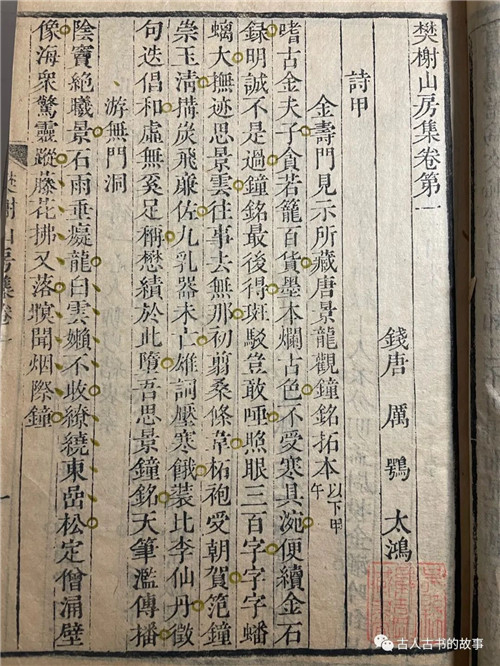 樊榭山房集卷第一
錢唐 厲鶚 太鴻
詩甲
金壽門見示所藏唐景龍觀鐘銘拓本以下甲午
嗜古金夫子貪若籠百貨墨本爛古色不受寒具涴便續金石
錄明誠不是過鐘銘最後得斑駁豈敢唾照眼三百字字字蟠
螭大撫迹思景雲往事去無那初翦桑條韋柘袍受朝賀笵鐘
崇玉清搆炭飛廉佐九乳器未亡雄詞壓寒餓裝比李仙丹徵
句迭倡和虛無奚足稱懋績於此隋吾思景鐘銘天筆濫傳播
游無門洞
陰竇絶曦景石雨垂癡龍白雲嬾不收繚繞東嵒松定僧涓壁
像海衆驚靈蹤藤花拂又落頫聞烟際鐘
樊榭山房集卷一
一
古人古书的故事